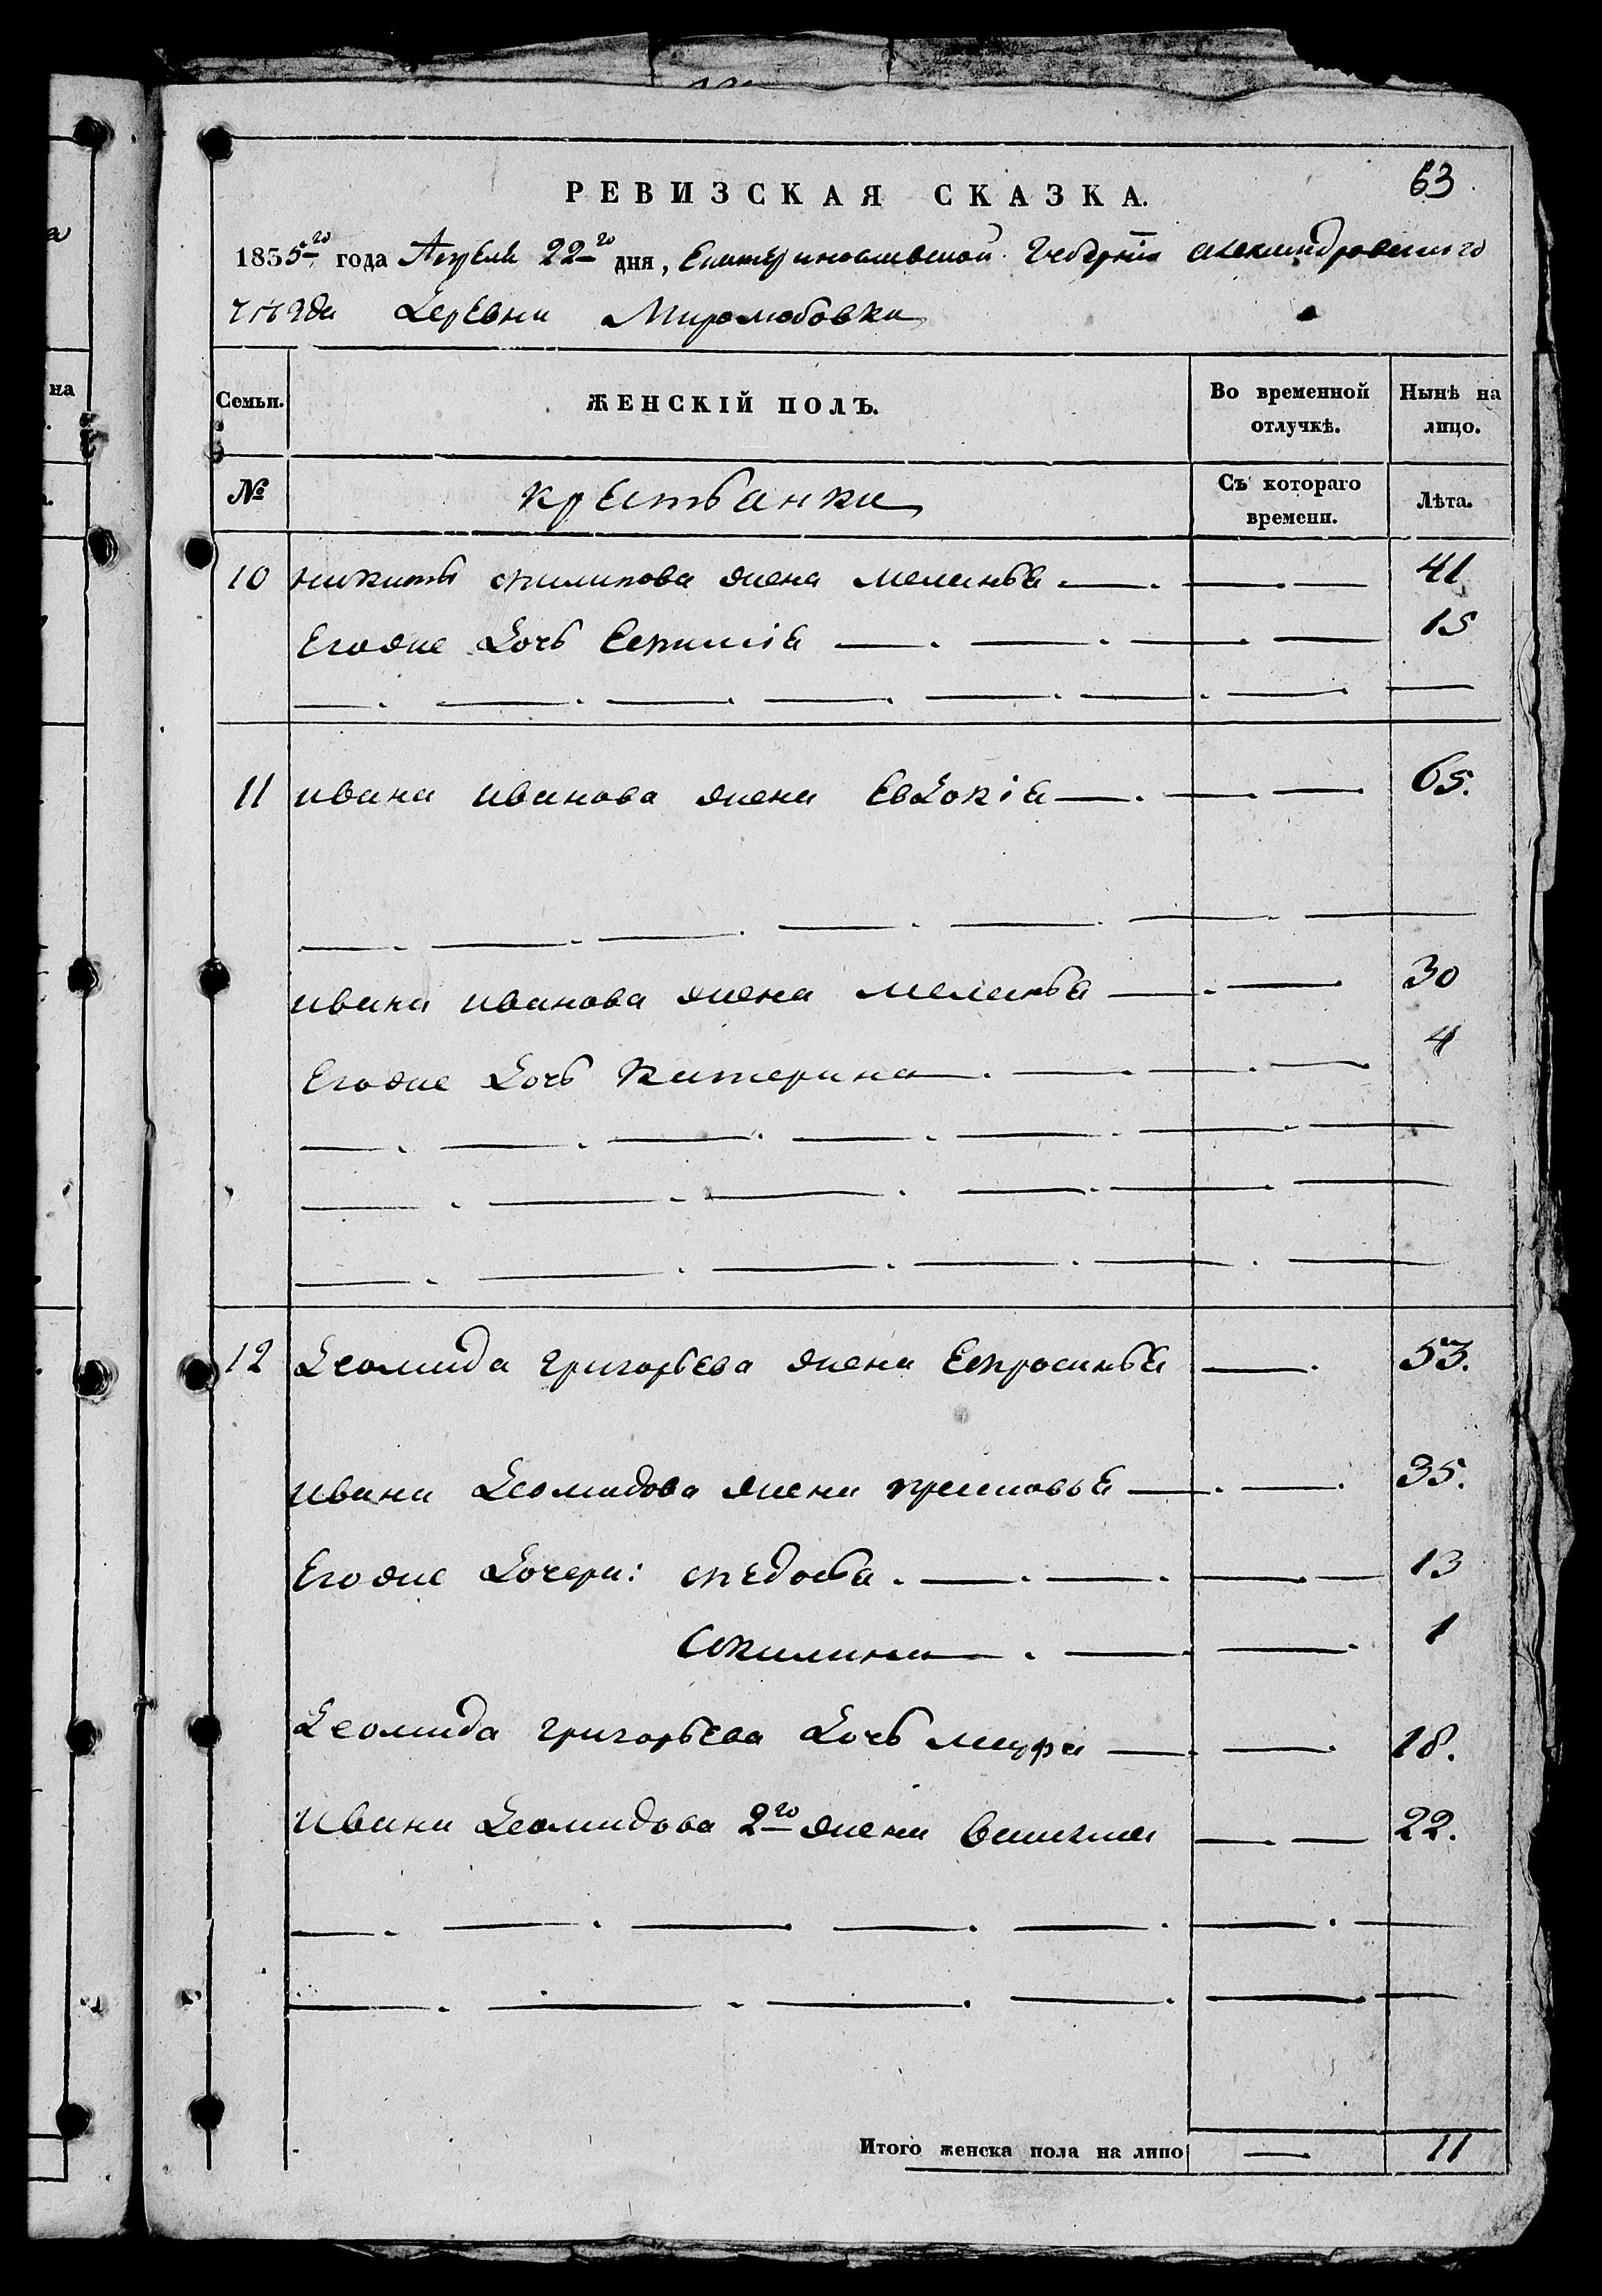 а
на
63
РЕВИЗСКАЯ СКАЗКА.
1855го года Апреля 22го дня, Екатеринославской Губерніи Александровского
уѣзда Деревни Миролюбовки
Семьи.
ЖЕНСКІЙ ПОЛЪ.
Во временной отлучкѣ.
Нынѣ на лицо.
№
крестьянки
Съ котораго времени.
Лѣта.
10 никиты филипова жена меланья 41
Егоже дочь Ефимія 15
11 ивана иванова жена Евдокія 65.
ивана иванова жена меланья 30
Егоже дочь катерина 4
12 Деомида григорьева жена Ефросинья 53.
ивана Деомидова жена прасковья 35.
Егоже дочери: федосья 13
Акилина 1
Деомида григорьева дочь мавра 18.
Ивана Деомидова 2го жена 22.
Итого женска пола на лицо 11